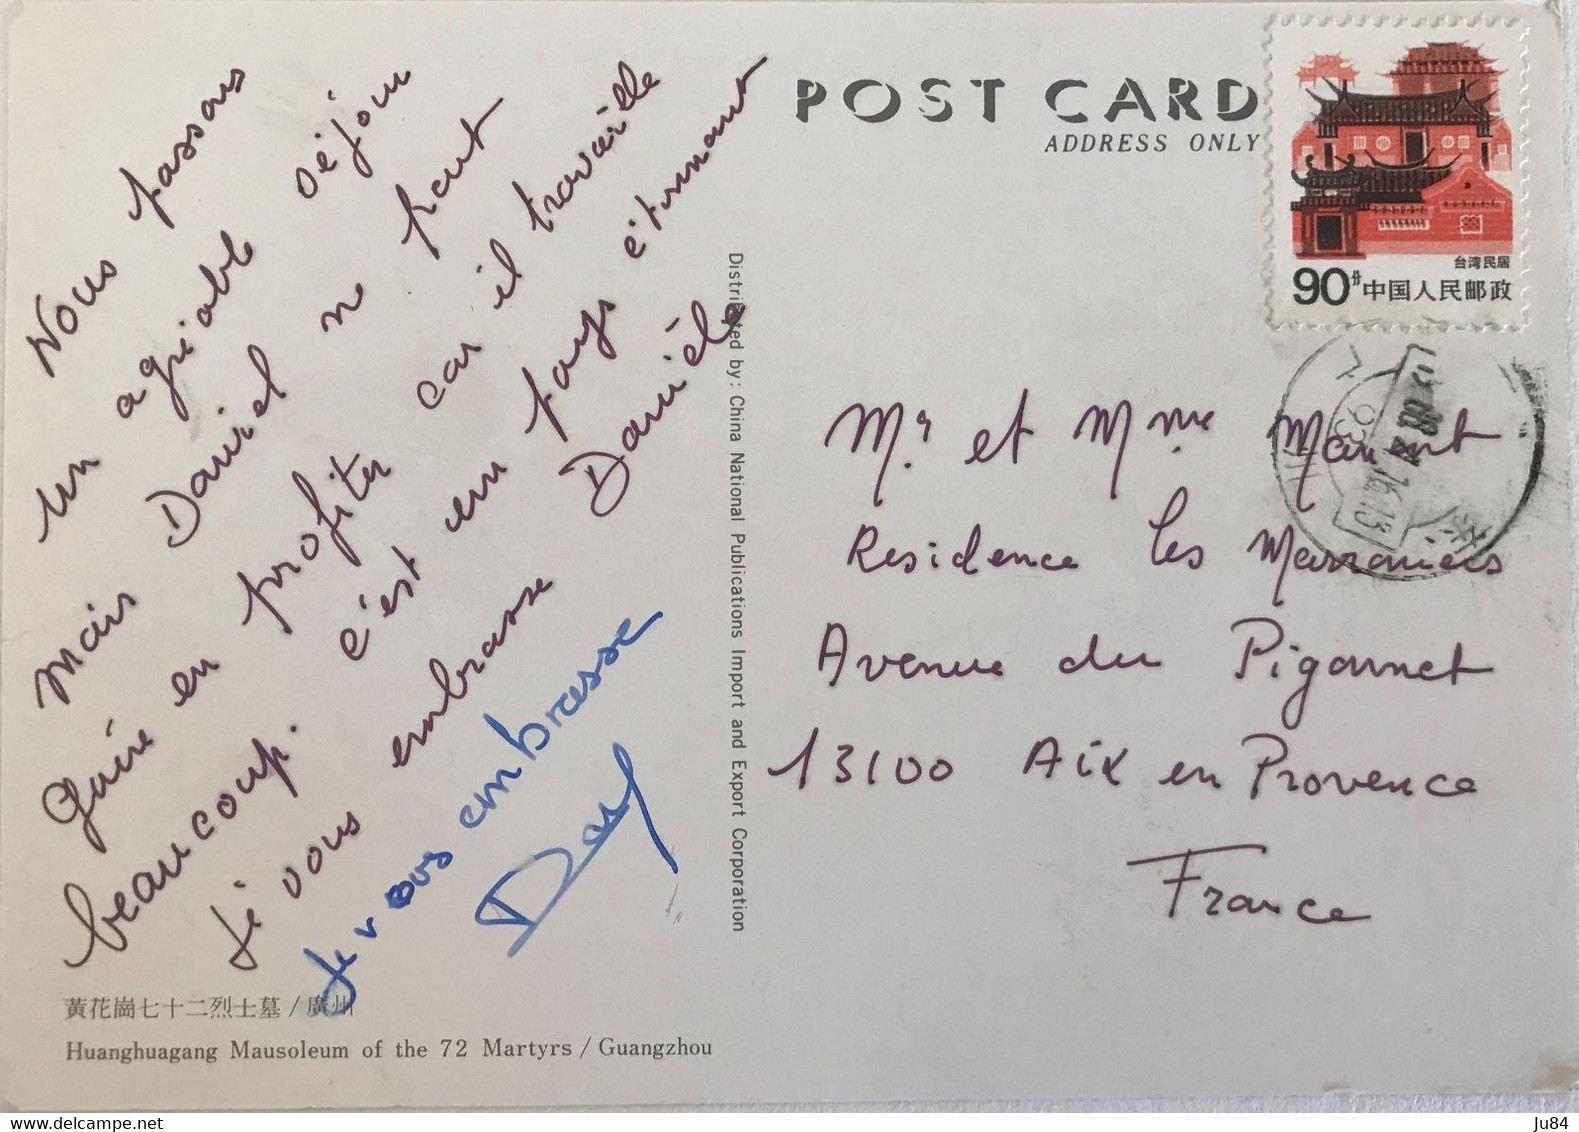 Nous passons
un agréable séjour
mais Daniel ne peut
guère en profiter car il travaille
beaucoup. c'est un pays étonnant
Je vous embrasse Danièle
Je vous embrasse
黃花崗七十二烈士墓 / 廣州
Huanghuagang Mausoleum of the 72 Martyrs / Guangzhou
Distributed by: China National Publications Import and Export Corporation
POST CARD
ADDRESS ONLY
台湾民居
90分 中国人民邮政
Mr et Mme
Residence les Marronniers
Avenue du Pigonnet
13100 Aix en Provence
France
delcampe.net
Ju84